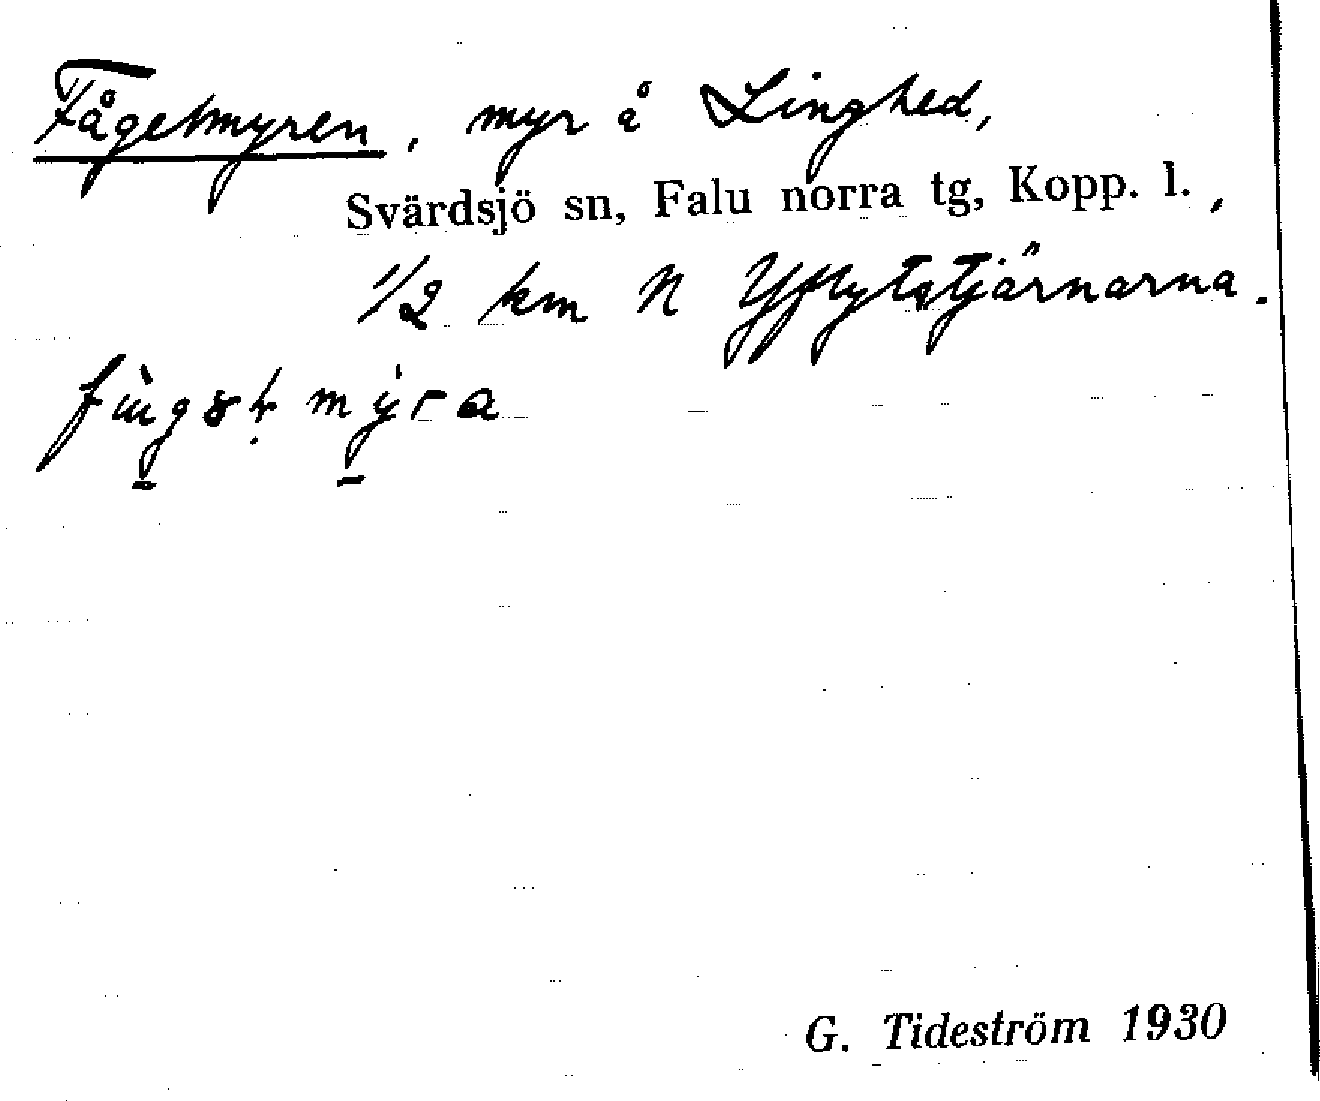 Fågelmyren, myr å Linghed,
Svärdsjö sn, Falu norra tg, Kopp. l.,
1/2 km N Yflytstjärnarna.
G. Tideström 1930